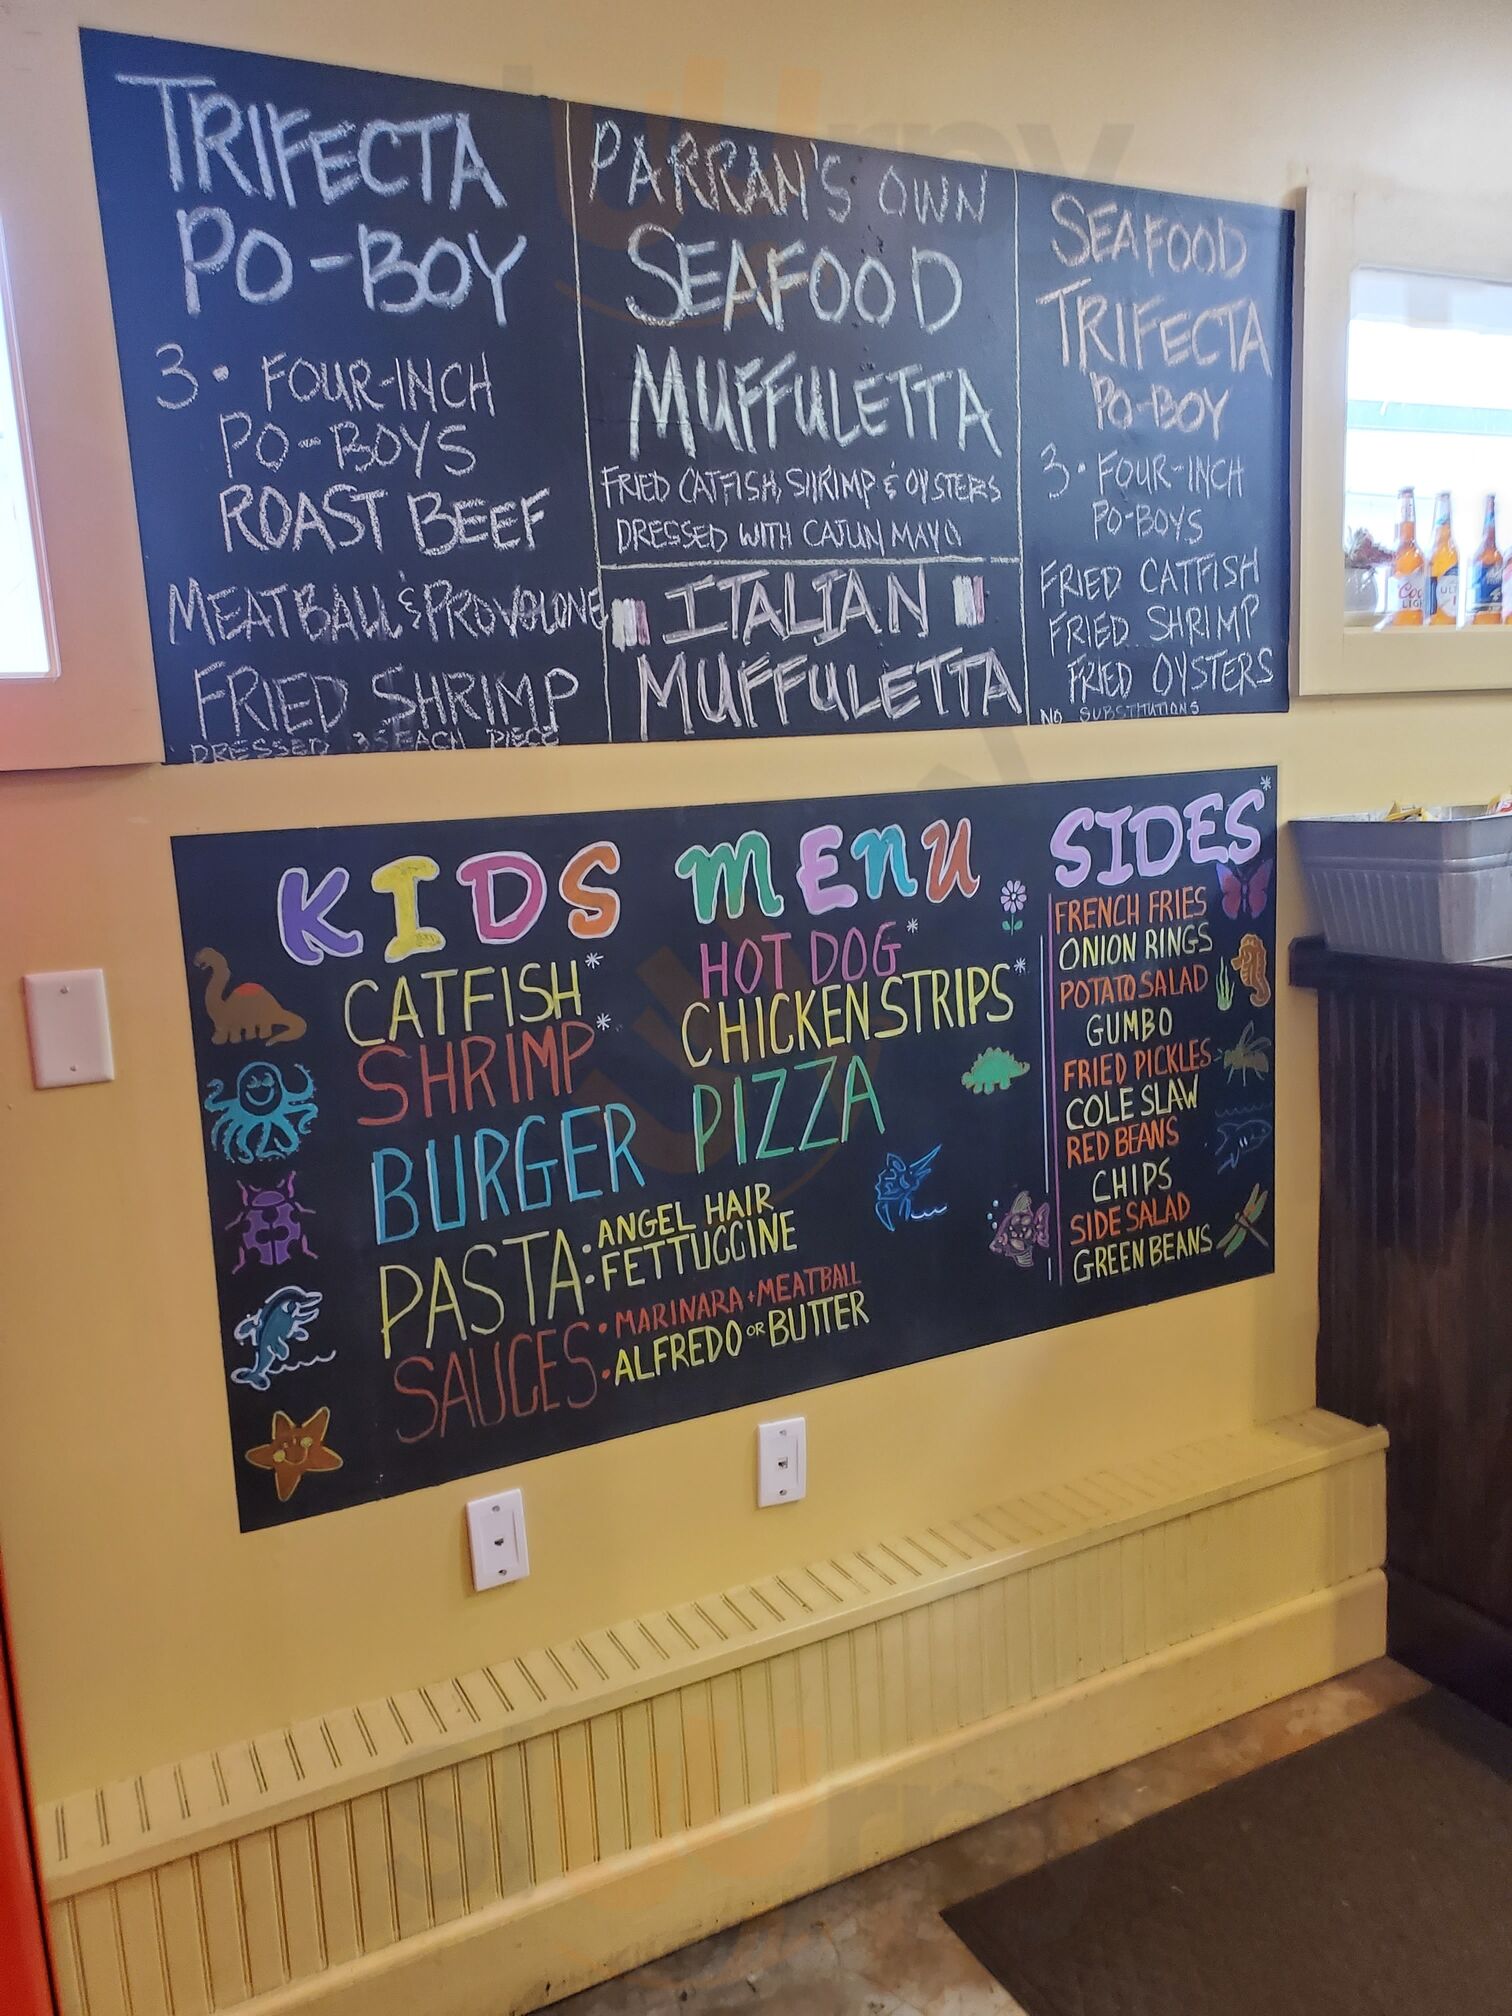 TRIFECTA
PO-BOY
3 • FOUR-INCH
PO-BOYS
ROAST BEEF
MEATBALL & PROVOLONE
FRIED SHRIMP
DRESSED EACH PIECE
PARRAN'S OWN
SEAFOOD
MUFFULETTA
FRIED CATFISH, SHRIMP & OYSTERS
DRESSED WITH CAJUN MAYO
ITALIAN
MUFFULETTA
SEAFOOD
TRIFECTA
PO-BOY
3 • FOUR-INCH
PO-BOYS
FRIED CATFISH
FRIED SHRIMP
FRIED OYSTERS
NO SUBSTITUTIONS
KIDS MENU
CATFISH*
SHRIMP*
BURGER
HOT DOG*
CHICKEN STRIPS*
PIZZA
PASTA: ANGEL HAIR
FETTUCCINE
SAUCES: MARINARA + MEATBALL
ALFREDO OR BUTTER
SIDES*
FRENCH FRIES
ONION RINGS
POTATO SALAD
GUMBO
FRIED PICKLES
COLE SLAW
RED BEANS
CHIPS
SIDE SALAD
GREEN BEANS